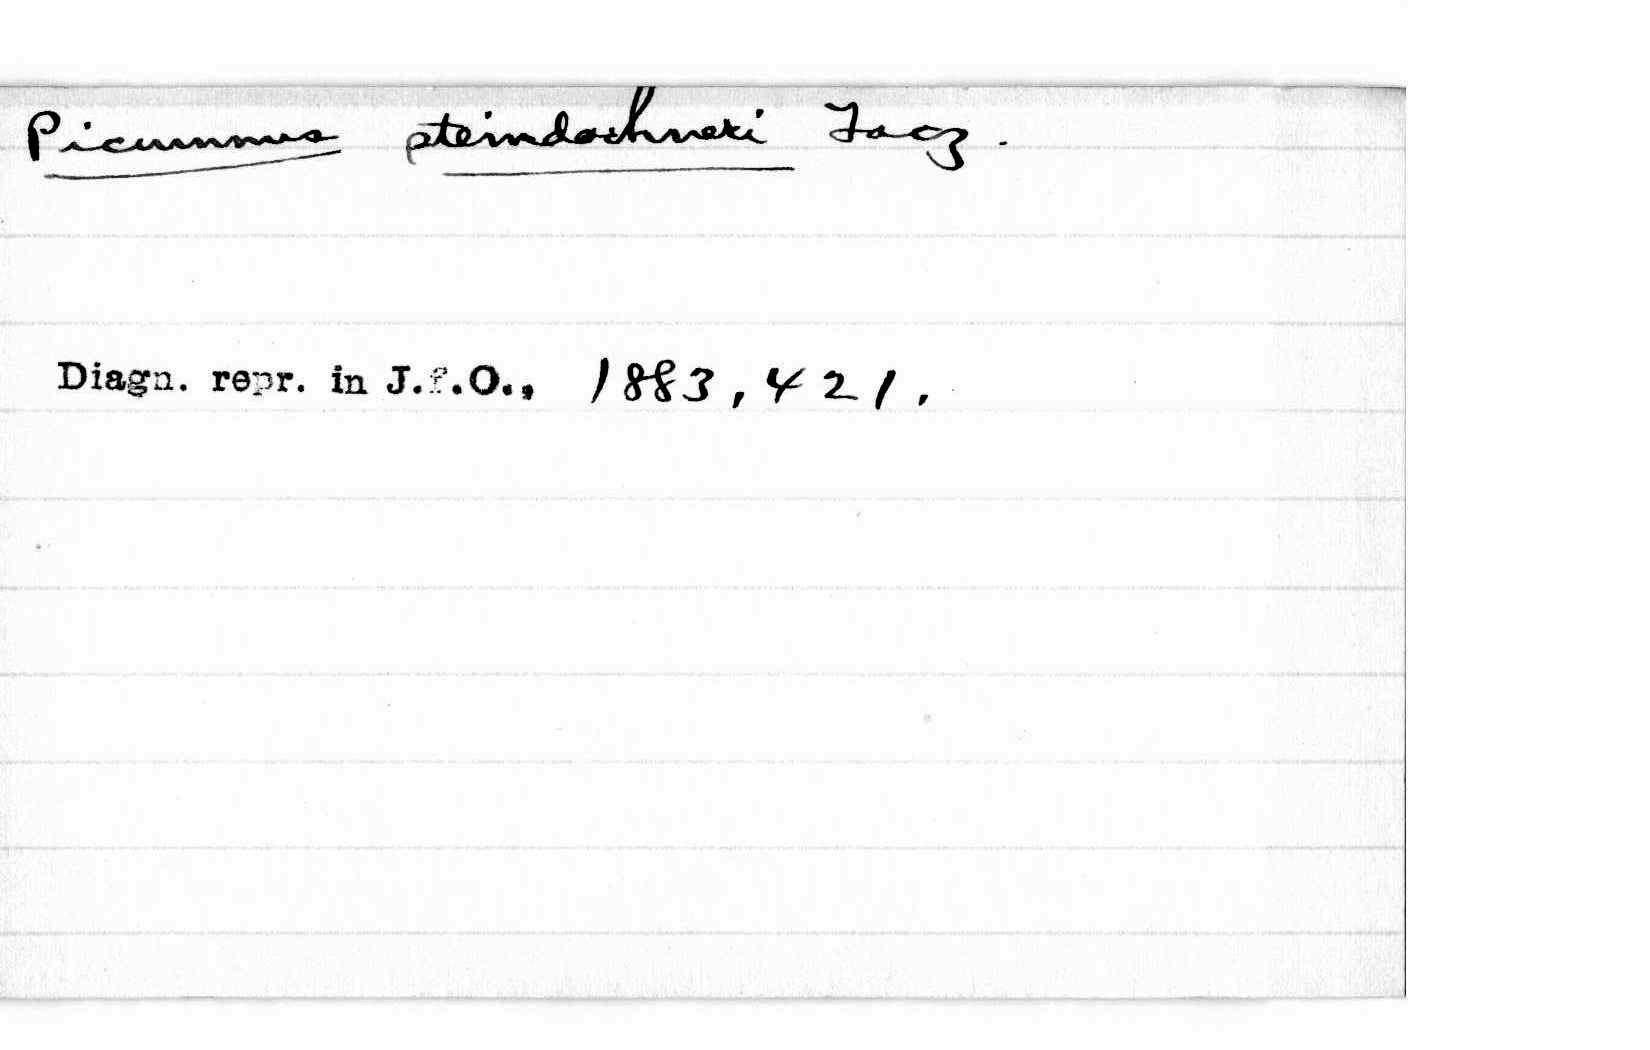 Picumnus steindachneri Tacz.
Diagn. repr. in J.f.O., 1883, 421.